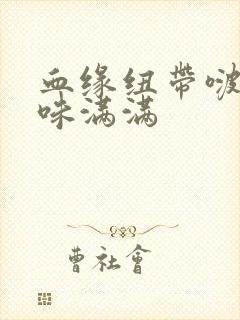 血缘纽带啵
咪满满
曹社會